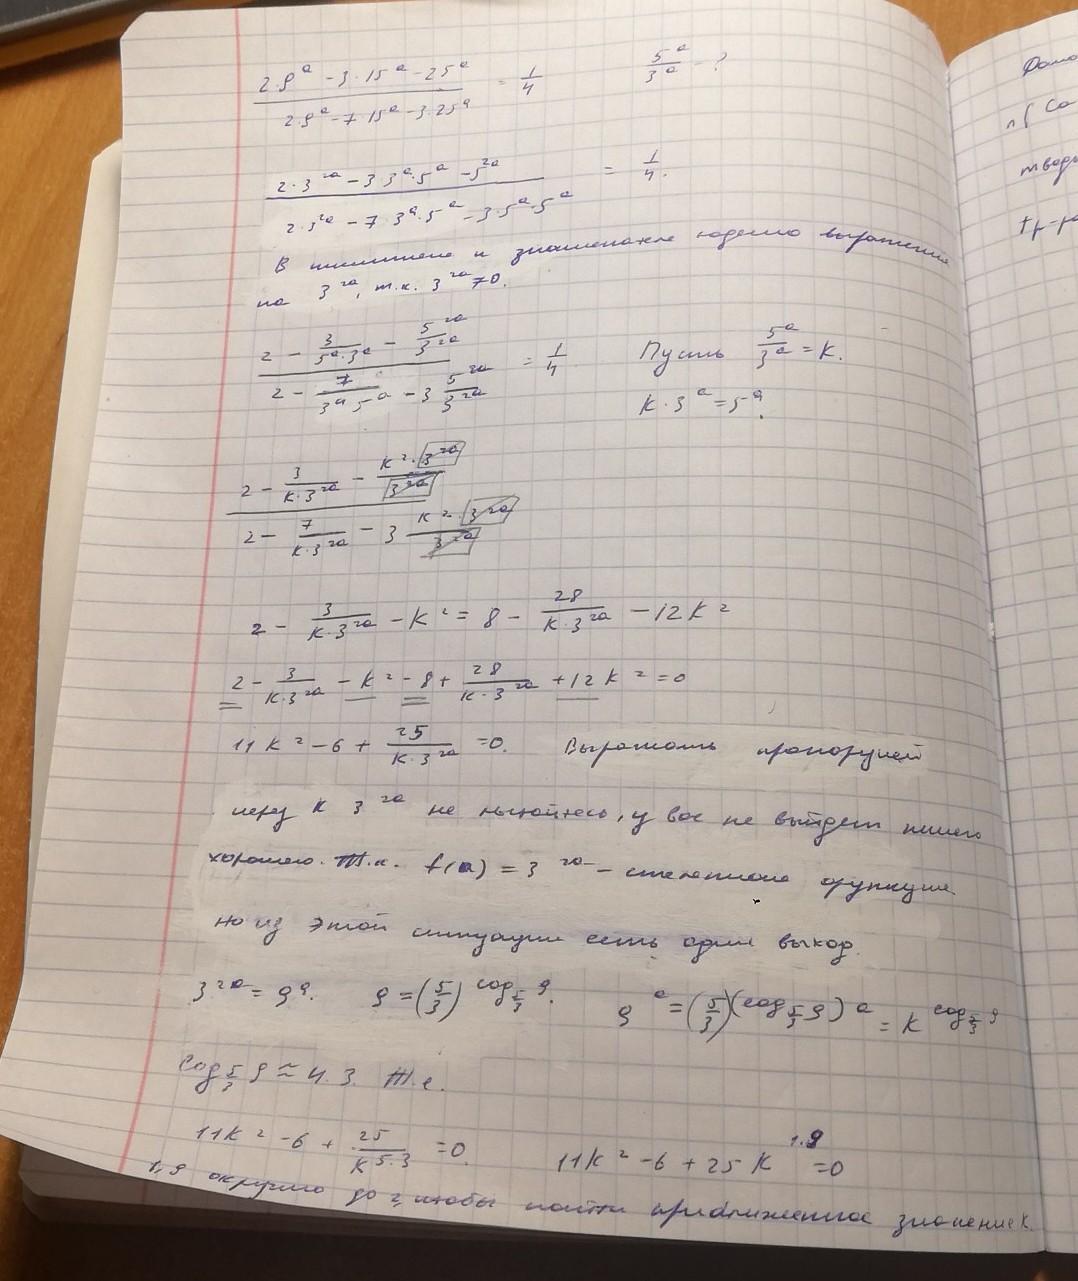 2·9^a - 3·15^a - 25^a / 2·9^a - 7·15^a - 3·25^a = 1/4    5^a/3^a - ?
2·3^2a - 3·3^a·5^a - 5^2a / 2·3^2a - 7·3^a·5^a - 3·5^a·5^a = 1/4.
В числителе и знаменателе поделю выражение
на 3^2a, т.к. 3^2a ≠ 0.
2 - 3/5^a·3^a - 5^2a/3^2a / 2 - 7/3^a 5^a - 3 5^2a/3^2a = 1/4    Пусть 5^a/3^a = K.
K·3^a = 5^a.
2 - 3/K·3^2a - K^2·3^2a/3^2a / 2 - 7/K·3^2a - 3 K^2·3^2a/3^2a
2 - 3/K·3^2a - K^2 = 8 - 28/K·3^2a - 12K^2
2 - 3/K·3^2a - K^2 - 8 + 28/K·3^2a + 12K^2 = 0
11K^2 - 6 + 25/K·3^2a = 0. Выражать пропорцией
через K 3^2a не пытайтесь, у вас не выйдет ничего
хорошего. Т.к. f(a) = 3^2a - степенная функция
но из этой ситуации есть один выход.
3^2a = 9^a. 9 = (5/3)^log_5/3 9. 9^a = (5/3)^(log_5/3 9)a = K^log_5/3 9
log_5/3 9 ≈ 4.3. Т.е.
11K^2 - 6 + 25/K^5.3 = 0. 11K^2 - 6 + 25K^1.9 = 0
1,9 округлю до 2, чтобы найти приближенное значение K.
Фам
тводь